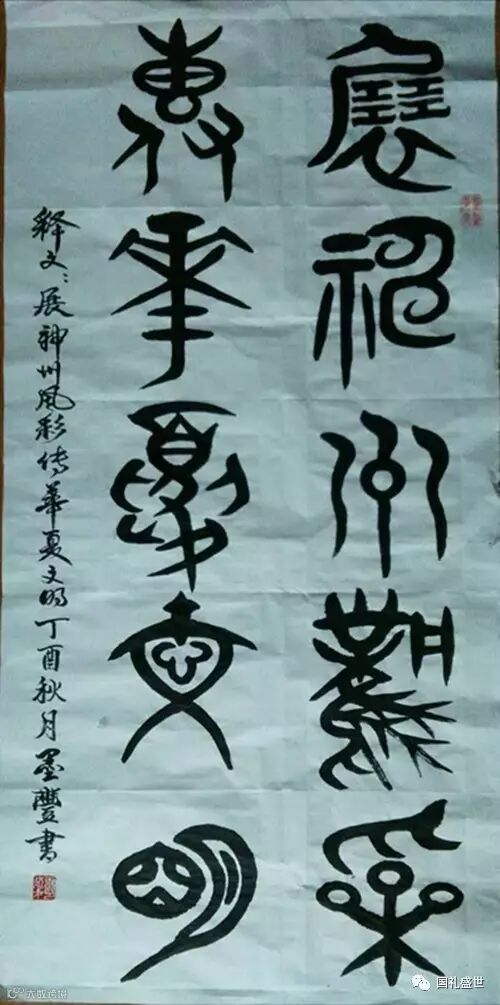 展神州風采
傳華夏文明
释文：展神州风彩传華夏文明丁酉秋月墨豐书
国礼盛世
大数跨境